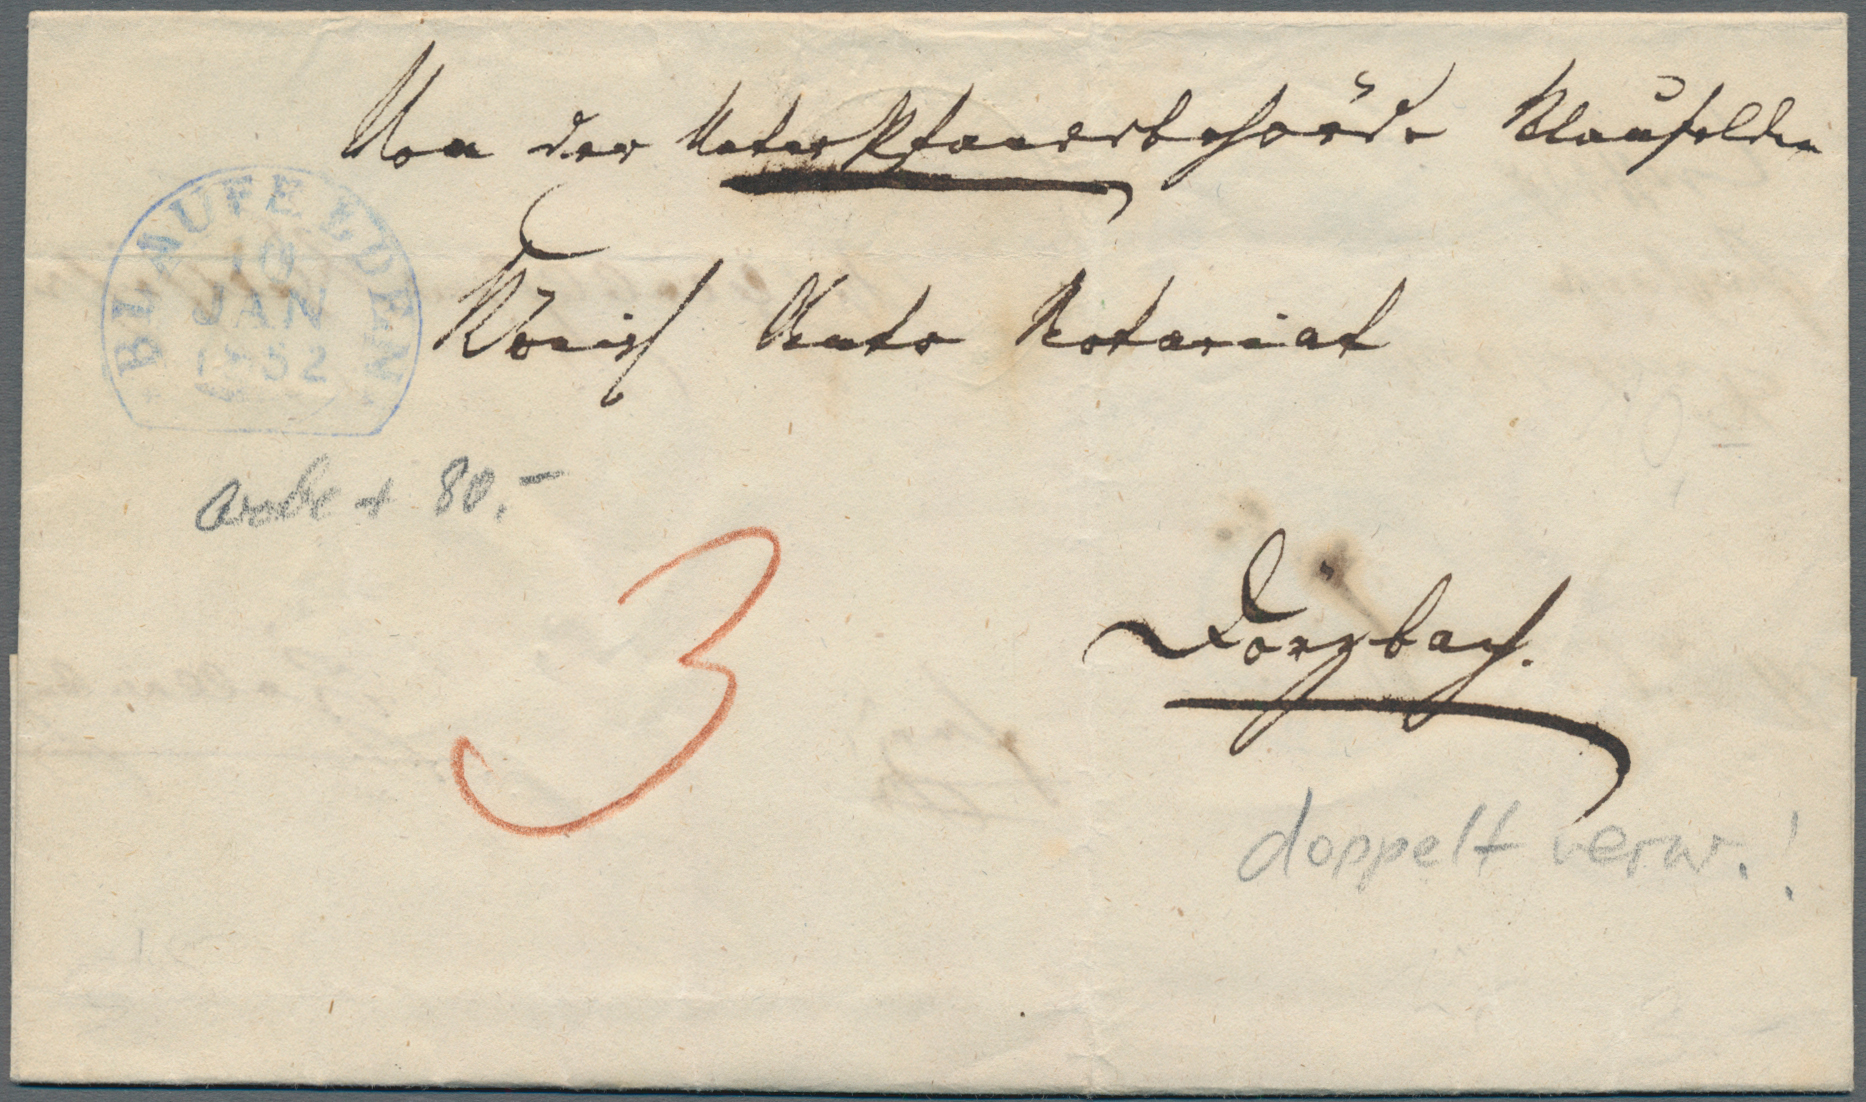 Von der Unterpfandsbehörde Blaufelden
BLAUFELDEN
10
JAN
1852
Königl Amts Notariat
+ 80.-
3
Dörzbach.
doppelt verw.!